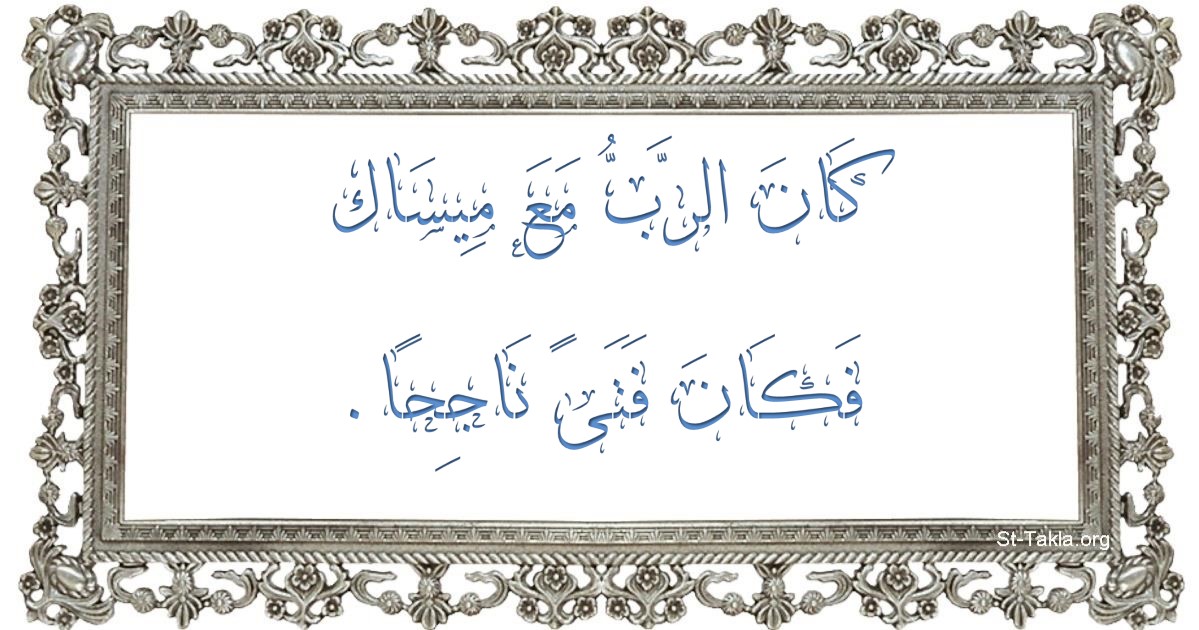 كَانَ الرَّبُّ مَعَ مِيسَاك
فَكَانَ فَتَىً نَاجِحًا .
St-Takla.org